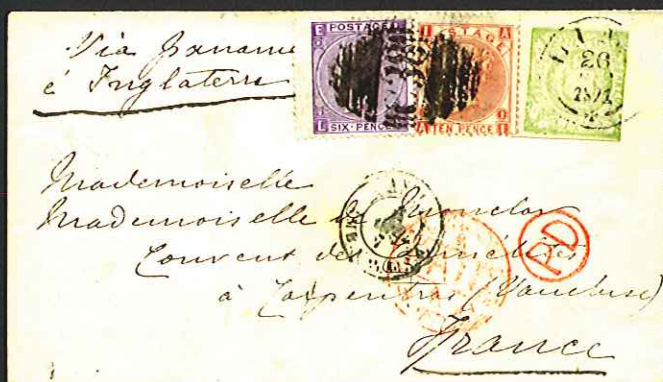 Via Panama
é Inglaterra
E POSTAGE
SIX-PENCE L
I POSTAGE A
A TEN PENCE I
26
1871
Mademoiselle
Mademoiselle de Monclar
Couvent des Carmélites
à Carpentras (Vaucluse)
France
PD